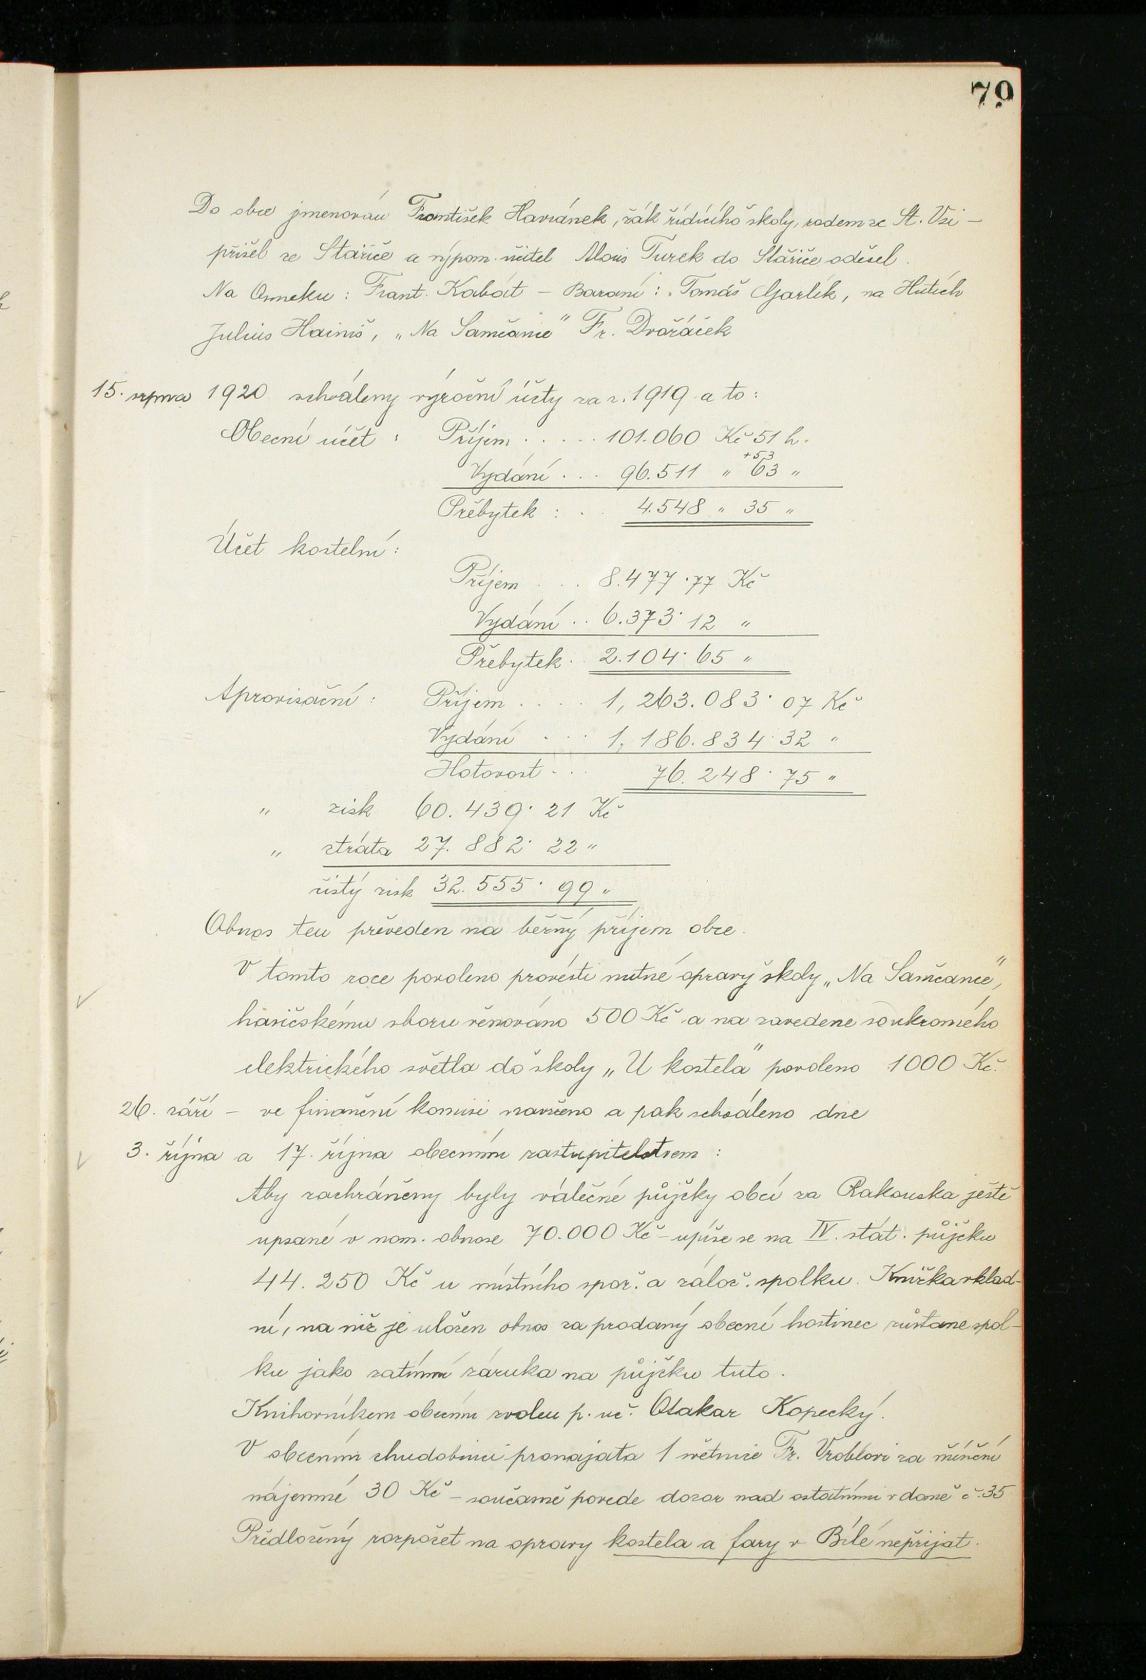 79
Do obce jmenován František Havránek, žák řídícího školy, rodem ze St. Vsi –
přišel ze Staříče a výpom. učitel Alois Turek do Staříče odešel.
Na Ovneku: Frant. Kabát – Baraní: Tomáš Garlík, na Hutích
Julius Hainiš, „Na Samčance" Fr. Dvořáček
15. srpna 1920 schváleny výroční účty za r. 1919 a to:
Obecní účet: Příjem ..... 101.060 Kč 51 h.
+53
Vydání ... 96.511 „ 63 „
Přebytek: .. 4.548 „ 35 „
Účet kostelní:
Příjem .... 8.477·77 Kč
Vydání .. 6.373·12 „
Přebytek. 2.104·65 „
Aprovisační: Příjem .... 1,263.083·07 Kč
Vydání ... 1,186.834·32 „
Hotovost ... 76.248·75 „
„ zisk 60.439·21 Kč
„ ztráta 27.882·22 „
čistý zisk 32.555·99 „
Obnos ten převeden na běžný příjem obce.
V tomto roce povoleno provésti nutné opravy školy „Na Samčance",
hasičskému sboru věnováno 500 Kč a na zavedene soukromého
elektrického světla do školy „U kostela" povoleno 1000 Kč.
26. září – ve finanční komisi navrženo a pak schváleno dne
3. října a 17. října obecním zastupitelstvem:
Aby zachráněny byly válečné půjčky obcí za Rakouska ještě
upsané v nom. obnose 70.000 Kč – upíše se na IV. stát. půjčku
44.250 Kč u místního spoř. a zálož. spolku. Knížka vklad-
ní, na niž je uložen obnos za prodaný obecní hostinec zůstane spol-
ku jako zatímní záruka na půjčku tuto.
Knihovníkem obecním zvolen p. uč. Otakar Kopecký.
V obecním chudobinci pronajata 1 světnice Fr. Vroblovi za mínění
nájemné 30 Kč – současně povede dozor nad ostatními v domě č. 35
Předložený rozpočet na opravy kostela a fary v Bílé nepřijat.